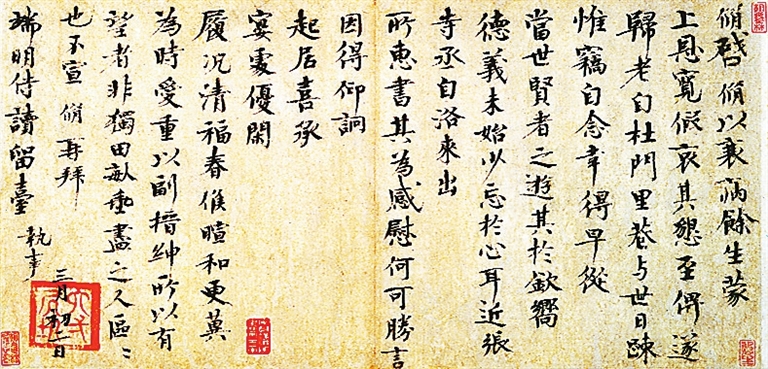 脩啓脩以衰病餘生蒙
上恩寬假哀其懇至俾遂
歸老自杜門里巷与世日踈
惟竊自念幸得早從
當世賢者之遊其於欽嚮
德義未始少忘於心耳近張
寺丞自洛來出
所惠書其為感慰何可勝言
因得仰詗
起居喜承
宴處優閑
履況清福春候暄和更冀
為時愛重以副搢紳所以有
望者非獨田畝垂盡之人區〻
也不宣 脩再拜
端明侍讀留臺 執事
三月初二日